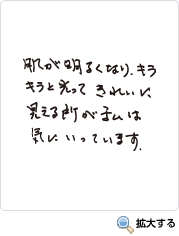 肌が明るくなり、キラ
キラと光って きれいに
見える所が私は
気に いっています。
拡大する